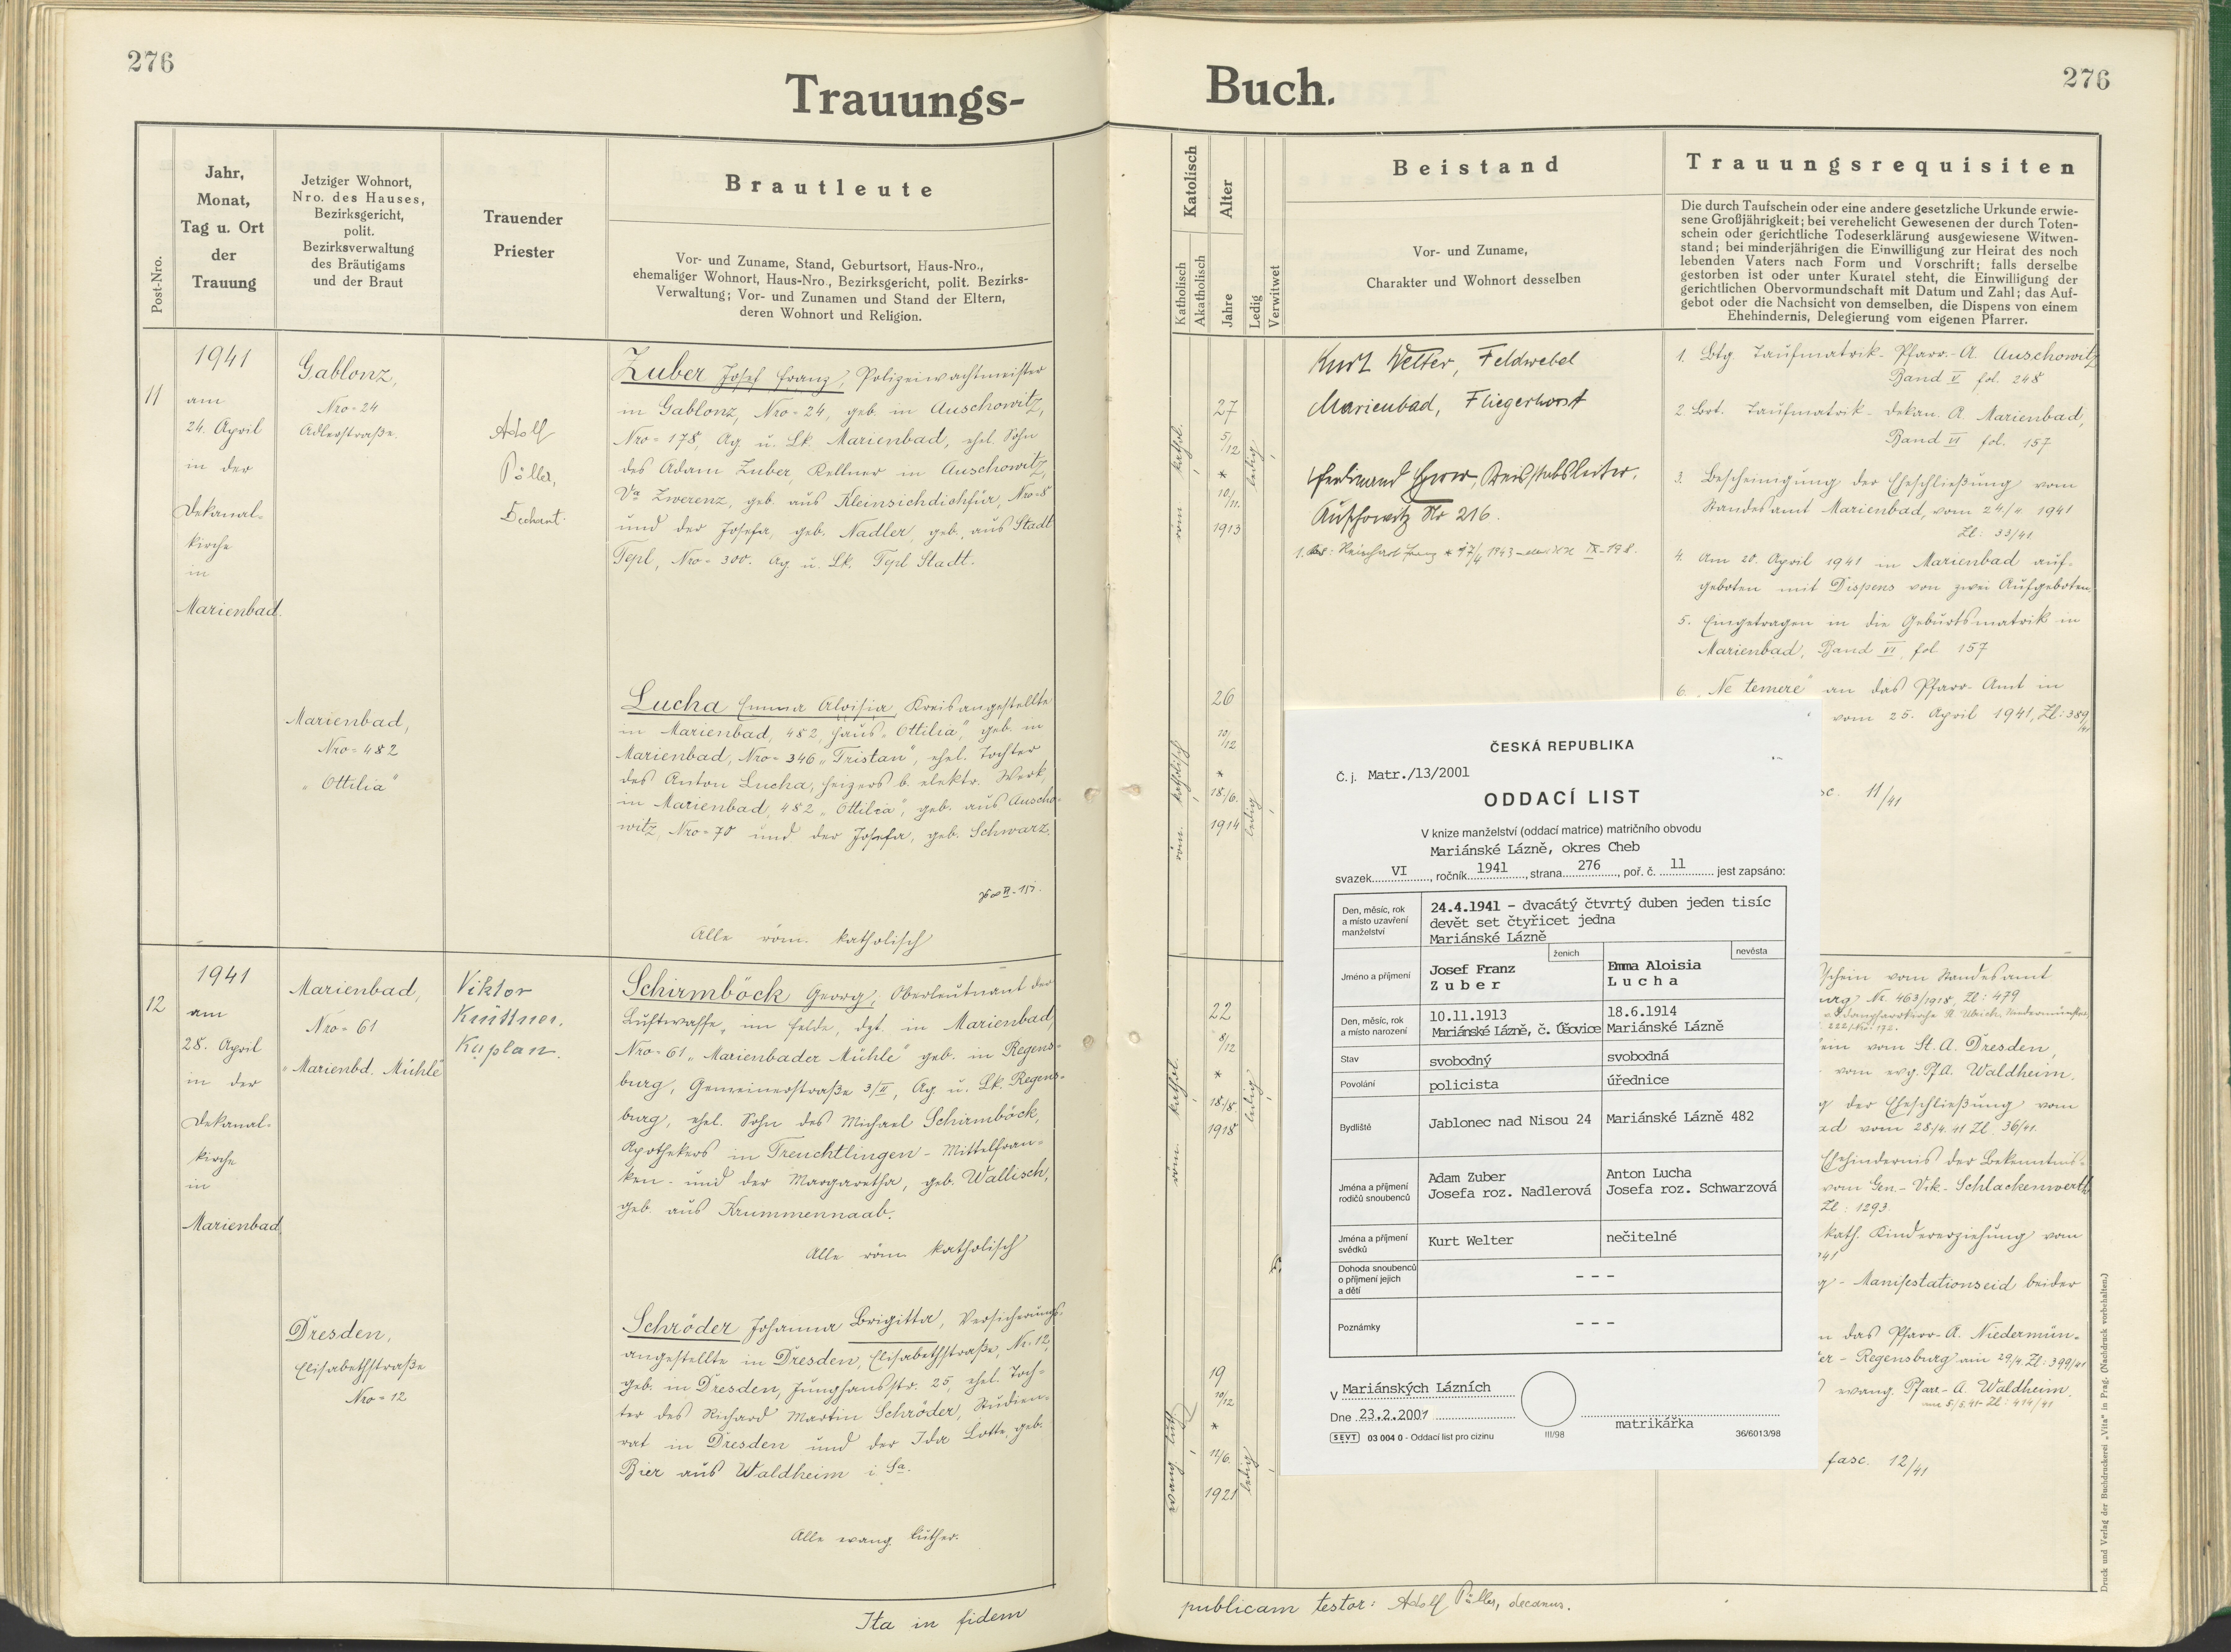 276
Trauungs-
Buch.
276
Post-Nro.
Jahr,
Monat,
Tag u. Ort
der
Trauung
Jetziger Wohnort,
Nro. des Hauses,
Bezirksgericht,
polit.
Bezirksverwaltung
des Bräutigams
und der Braut
Trauender
Priester
Brautleute
Vor- und Zuname, Stand, Geburtsort, Haus-Nro.,
ehemaliger Wohnort, Haus-Nro., Bezirksgericht, polit. Bezirks-
Verwaltung; Vor- und Zunamen und Stand der Eltern,
deren Wohnort und Religion.
11
1941
am
24. April
in der
Dekanal-
kirche
in
Marienbad.
Gablonz,
Nro=24
Adlerstraße.
Adolf
Pöller,
Dechant.
Zuber Josef Franz, Polizeiwachtmeister
in Gablonz, Nro=24, geb. in Auschowitz,
Nro=178, Ag. u. Lk. Marienbad, ehel. Sohn
des Adam Zuber, Kellner in Auschowitz,
Zwerenz, geb. aus Kleinsichdichfür, Nro=8
und der Josefa, geb. Nadler, geb. aus Stadt
Tepl, Nro=300. Ag. u. Lk. Tepl Stadt.
Marienbad,
Nro=482
„Ottilia"
Lucha Emma Aloisia, Kreisangestellte
in Marienbad, 482, Haus „Ottilia", geb. in
Marienbad, Nro=346 „Tristan", ehel. Tochter
des Anton Lucha, Heizers b. elektr. Werk,
in Marienbad, 482 „Ottilia", geb. aus Auscho-
witz, Nro=70 und der Josefa, geb. Schwarz.
Alle röm. katholisch
12
1941
am
28. April
in der
Dekanal-
kirche
in
Marienbad
Marienbad,
Nro=61
„Marienbd. Mühle"
Viktor
Küttner,
Kaplan.
Schirmböck Georg, Oberleutnant der
Luftwaffe, im Felde, dzt. in Marienbad,
Nro=61 „Marienbader Mühle" geb. in Regens-
burg, Gemeinerstraße 3/II, Ag. u. Lk. Regens-
burg, ehel. Sohn des Michael Schirmböck,
Apothekers in Treuchtlingen - Mittelfran-
ken - und der Margaretha, geb. Wallisch,
geb. aus Krummennaab.
Alle röm. katholisch
Dresden,
Elisabethstraße
Nro=12
Schröder Johanna Brigitta, Versicherungs-
angestellte in Dresden, Elisabethstraße, Nr. 12,
geb. in Dresden, Junghansstr. 25, ehel. Toch-
ter des Richard Martin Schröder, Studien-
rat in Dresden und der Ida Lotte, geb.
Bier aus Waldheim i. Sa.
Alle evang. luther.
Ita in fidem
Katolisch
Katholisch
Akatholisch
Alter
Jahre
Ledig
Verwitwet
Beistand
Vor- und Zuname,
Charakter und Wohnort desselben
Trauungsrequisiten
Die durch Taufschein oder eine andere gesetzliche Urkunde erwie-
sene Großjährigkeit; bei verehelicht Gewesenen der durch Toten-
schein oder gerichtliche Todeserklärung ausgewiesene Witwen-
stand; bei minderjährigen die Einwilligung zur Heirat des noch
lebenden Vaters nach Form und Vorschrift; falls derselbe
gestorben ist oder unter Kuratel steht, die Einwilligung der
gerichtlichen Obervormundschaft mit Datum und Zahl; das Auf-
gebot oder die Nachsicht von demselben, die Dispens von einem
Ehehindernis, Delegierung vom eigenen Pfarrer.
röm. kathol.
27
5/12
*
10/11.
1913
ledig
Kurt Welter, Feldwebel
Marienbad, Fliegerhorst
Ferdinand
Auschowitz Nr 216.
1. Btg. Taufmatrik- Pfarr-A. Auschowitz
Band V fol. 248
2. Brt. Taufmatrik- Dekan. A. Marienbad,
Band VI fol. 157
3. Bescheinigung der Eheschließung vom
Standesamt Marienbad, vom 24/4. 1941
Zl: 33/41
4. Am 20. April 1941 in Marienbad auf-
geboten mit Dispens von zwei Aufgeboten.
5. Eingetragen in die Geburtsmatrik in
Marienbad, Band VI, fol 157
6. „Ne temere" an das Pfarr-Amt in
vom 25. April 1941, Zl: 389/41
11/41
röm. katholisch
26
10/12
*
18./6.
1914
ledig
röm. kathol.
22
8/12
*
18./8.
1918
ledig
schein vom Standesamt
Nr. 463/1918, Zl: 479
vom St. A. Dresden,
vom evg. Pf.A. Waldheim.
der Eheschließung vom
vom 28/4.41 Zl. 36/41.
Ehehindernis der Bekenntnis-
vom Gen.-Vik.- Schlackenwerth
Zl: 1293
kath. Kindererziehung vom
- Manifestationseid beider
das Pfarr-A. Niedermün-
ster - Regensburg am 29/4. Zl: 399/41
evang. Pfarr-A. Waldheim.
am 5/5.41 Zl: 414/41
fasc. 12/41
evang. luth.
19
10/12
*
11/6.
1921
ledig
ČESKÁ REPUBLIKA
Č. j. Matr./13/2001
ODDACÍ LIST
V knize manželství (oddací matrice) matričního obvodu
Mariánské Lázně, okres Cheb
svazek VI, ročník 1941, strana 276, poř. č. 11 jest zapsáno:
Den, měsíc, rok
a místo uzavření
manželství
24.4.1941 - dvacátý čtvrtý duben jeden tisíc
devět set čtyřicet jedna
Mariánské Lázně
ženich
nevěsta
Jméno a příjmení
Josef Franz
Zuber
Emma Aloisia
Lucha
Den, měsíc, rok
a místo narození
10.11.1913
Mariánské Lázně, č. Úšovice
18.6.1914
Mariánské Lázně
Stav
svobodný
svobodná
Povolání
policista
úřednice
Bydliště
Jablonec nad Nisou 24
Mariánské Lázně 482
Jména a příjmení
rodičů snoubenců
Adam Zuber
Josefa roz. Nadlerová
Anton Lucha
Josefa roz. Schwarzová
Jména a příjmení
svědků
Kurt Welter
nečitelné
Dohoda snoubenců
o příjmení jejich
a dětí
- - -
Poznámky
- - -
V Mariánských Lázních
Dne 23.2.2001
matrikářka
SEVT 03 004 0 - Oddací list pro cizinu
III/98
36/6013/98
Druck und Verlag der Buchdruckerei „Vita" in Prag. (Nachdruck vorbehalten.)
publicam testor: Adolf Pöller, decanus.